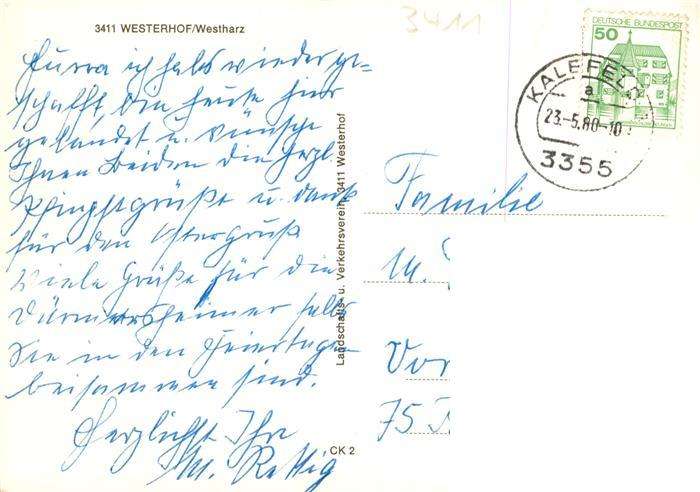 3411 WESTERHOF/Westharz
3411
Hurra ich habs wieder ge-
schafft, bin heute hier
gelandet u. wünsche
Ihnen Beiden die herzl.
Pfingstgrüße u. dank
für den Ostergruß
Viele Grüße für die
Dürmersheimer falls
Sie in den Feiertagen
beisammen sind.
Herzlichst Ihre
M. Rettig
Landschafts- u. Verkehrsverein, 3411 Westerhof
CK 2
DEUTSCHE BUNDESPOST
50
KALEFELD
a
23.-5.80-10
3355
Familie
M.
Vor
75